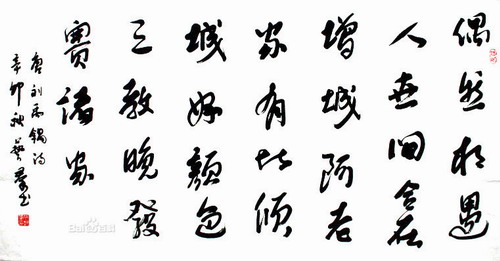 偶然相遇
人世间合在
增城阿老
家有此倾
城好颜色
天教晚發
賽諸花
唐刘禹锡诗
辛卯秋
Baidu百科